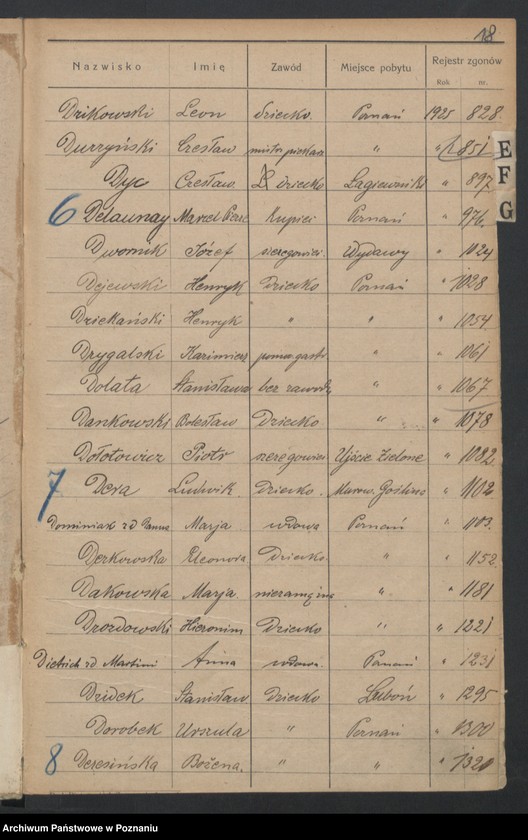 18
Nazwisko Imię Zawód Miejsce pobytu Rejestr zgonów
Rok nr.
Drikowski Leon dziecko. Poznań 1925 828.
Durzyński Czesław mistrz piekar. " " 851
Dyc Czesław. dziecko Łagiewniki " 897
6 Delaunay Marcel Pierre Kupiec Poznań " 976.
Dwornik Józef szeregowiec. Wydawy " 1024
Dejewski Henryk Dziecko Poznań " 1028
Dziekański Henryk " " " 1054
Drygalski Kazimierz pomoc gastr. " " 1061
Dolata Stanisława bez zawodu " " 1067
Dankowski Bolesław Dziecko " " 1078
Dołotowicz Piotr szeregowiec Ujście Zielone " 1082
7 Dera Ludwik. Dziecko. Murow. Goślina " 1102
Dominiak zd Marja wdowa Poznań " 1103.
Derkowska Eleonora Dziecko. " " 1152.
Dakowska Marja. niezamężna " " 1181
Drozdowski Hieronim Dziecko " " 1221
Dietrich zd Martini Anna wdowa. Poznań " 1231
Dzidek Stanisław Dziecko Luboń " 1295
Dorobek Urszula " Poznań " 1300
8 Deresińska Bożena. " " " 1320
E
F
G
Archiwum Państwowe w Poznaniu